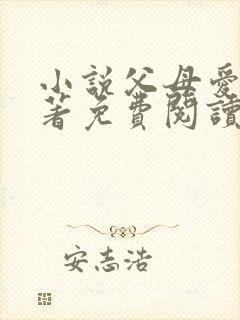 小說父母愛
著免費閱讀
安志浩